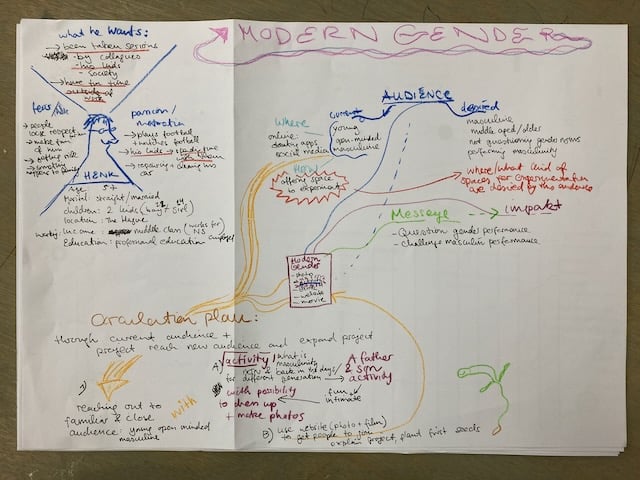 MODERN GENDER
what he wants:
→ been taken serious
- by colleagues
- his kids
- society
→ have fun time
outside of
work
fears
→ people
lose respect
→ make fun
of him
passion/
motivation
→ plays football
+ watches football
→ his kids → spends time
with them
→ repairing + cleaning his
car
HENK
age 51
Marital: straight/married
children: 2 kids (boy + girl)
location: The Hague
Income: middle class (works for
NS
Education: professional education
AUDIENCE
current
young
open minded
masculine
desired
masculine
middle aged/older
not questioning gender norms
performing masculinity
Where
online:
dating apps
social media
HOW
offering space
to experiment
where/what kind of
spaces for experimentation
are denied by this audience
Message
impakt
- Question gender performance
- challenge masculine performance
Modern
Gender
- website
- movie
Circulation plan:
through current audience +
project reach new audience and expand project
1)
reaching out to
familiar & close
audience: young open minded
masculine
with
A) activity/what is
masculinity
now & back in the days/
for different generation
A father
& son
activity
with possibility
to dress up
+ make photos
fun
intimate
B) use website (photo + film)
to get people to join
explain project, plant first seeds